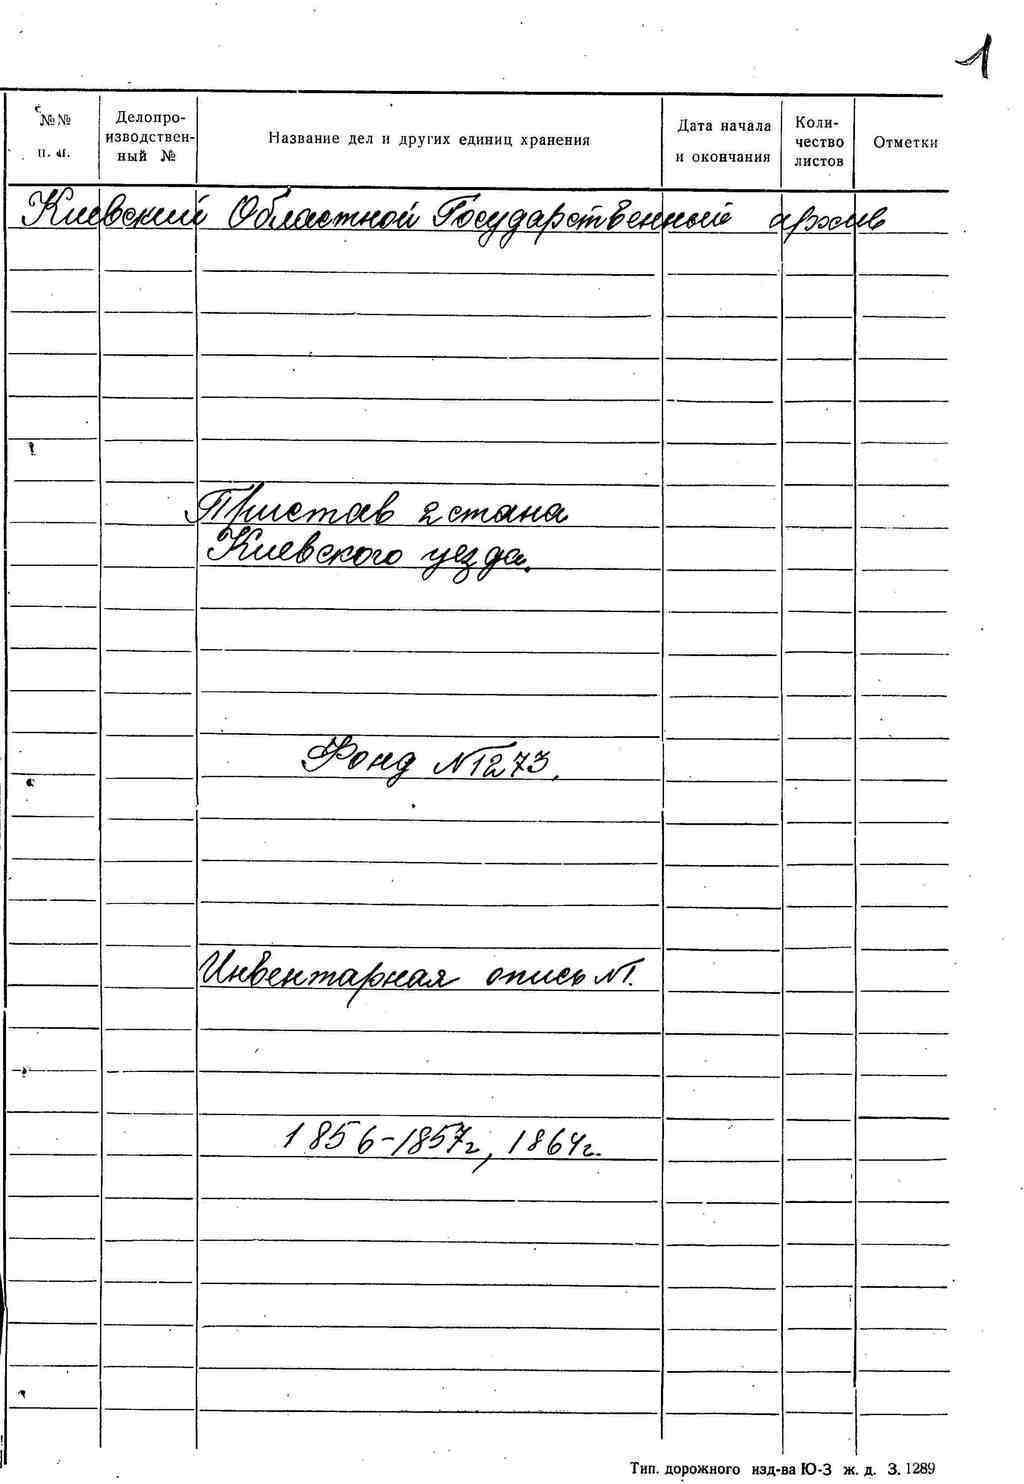 1
№№ п. п.
Делопроизводственный №
Название дел и других единиц хранения
Дата начала и окончания
Количество листов
Отметки
Киевский Областной Государственный архив
Пристав 2 стана
Киевского уезда.
Фонд №1273.
Инвентарная опись №1.
1856-1857г, 1864г.
Тип. дорожного изд-ва Ю-З ж. д. З. 1289